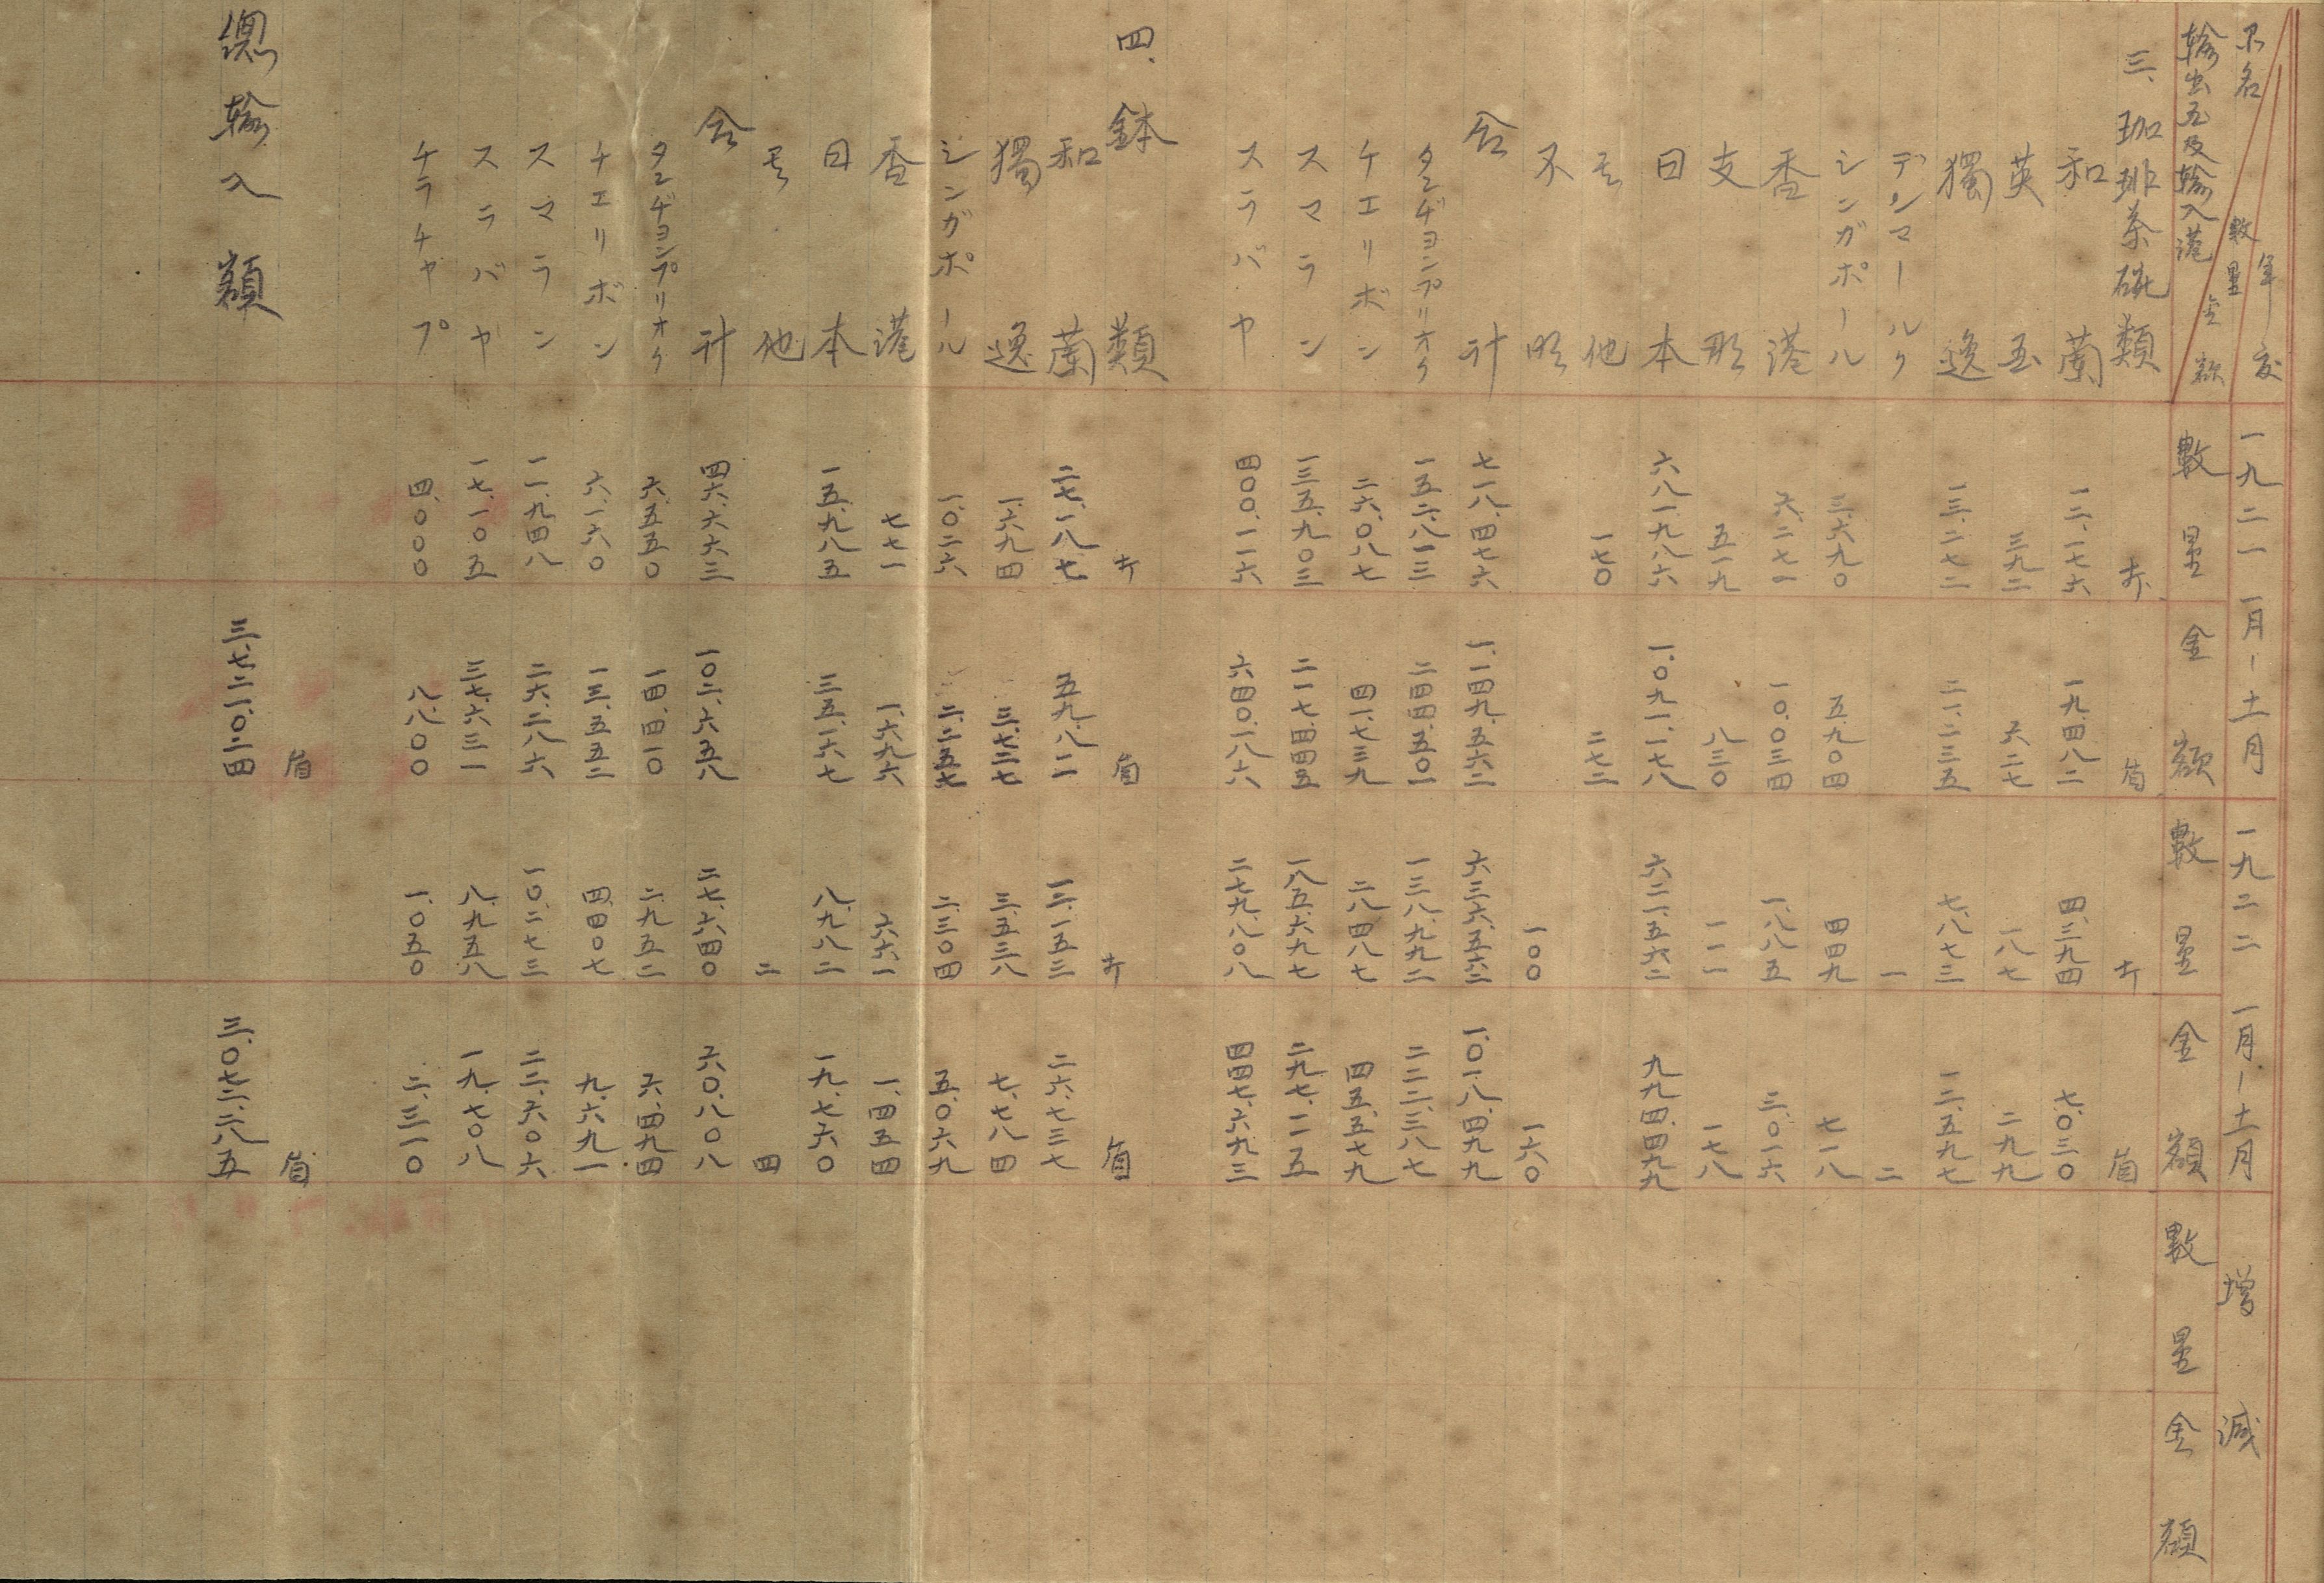 品名 年度
輸出国及輸入港 数量 金額
一九二一 一月ー十二月 一九二二 一月ー十二月 増減
数量 金額 数量 金額 数量 金額
三、珈琲茶碗類 打 盾 打 盾
和蘭 一二、一七六 一九、四八二 四、三九四 七、〇三〇
英国 三九二 六二七 一八七 二九九
獨逸 一三、二七二 二一、二三五 七、八七三 一二、五九七
デンマールク 一 二
シンガポール 三、六九〇 五、九〇四 四四九 七一八
香港 六、二七一 一〇、〇三四 一、八八五 三、〇一六
支那 五一九 八三〇 一一一 一七八
日本 六八一、九八六 一、〇九一、一七八 六二一、五六二 九九四、四九九
其他 一七〇 二七二
不明 一〇〇 一六〇
合計 七一八、四七六 一、一四九、五六二 六三六、五六二 一、〇一八、四九九
タンヂヨンプリオク 一五二、八一三 二四四、五〇一 一三八、九九二 二二二、三八七
チエリボン 二六、〇八七 四一、七三九 二八、四八七 四五、五七九
スマラン 一三五、九〇三 二一七、四四五 一八五、六九七 二九七、一一五
スラバヤ 四〇〇、一一六 六四〇、一八六 二七九、八〇八 四四七、六九三
四、鉢類 打 盾 打 盾
和蘭 二七、一八七 五九、八一一 一二、一五三 二六、七三七
獨逸 一、六九四 三、七二七 三、五三八 七、七八四
シンガポール 一、〇二六 二、二五七 二、三〇四 五、〇六九
香港 七七一 一、六九六 六六一 一、四五四
日本 一五、九八五 三五、一六七 八、九八二 一九、七六〇
其他 二 四
合計 四六、六六三 一〇二、六五八 二七、六四〇 六〇、八〇八
タンヂヨンプリオク 六、五五〇 一四、四一〇 二、九五二 六、四九四
チエリボン 六、一六〇 一三、五五二 四、四〇七 九、六九一
スマラン 一一、九四八 二六、二八六 一〇、二七三 二二、六〇六
スラバヤ 一七、一〇五 三七、六三一 八、九五八 一九、七〇八
チラチヤプ 四、〇〇〇 八、八〇〇 一、〇五〇 二、三一〇
盾 盾
総輸入額 三、七二一、〇二四 三、〇七二、二八五